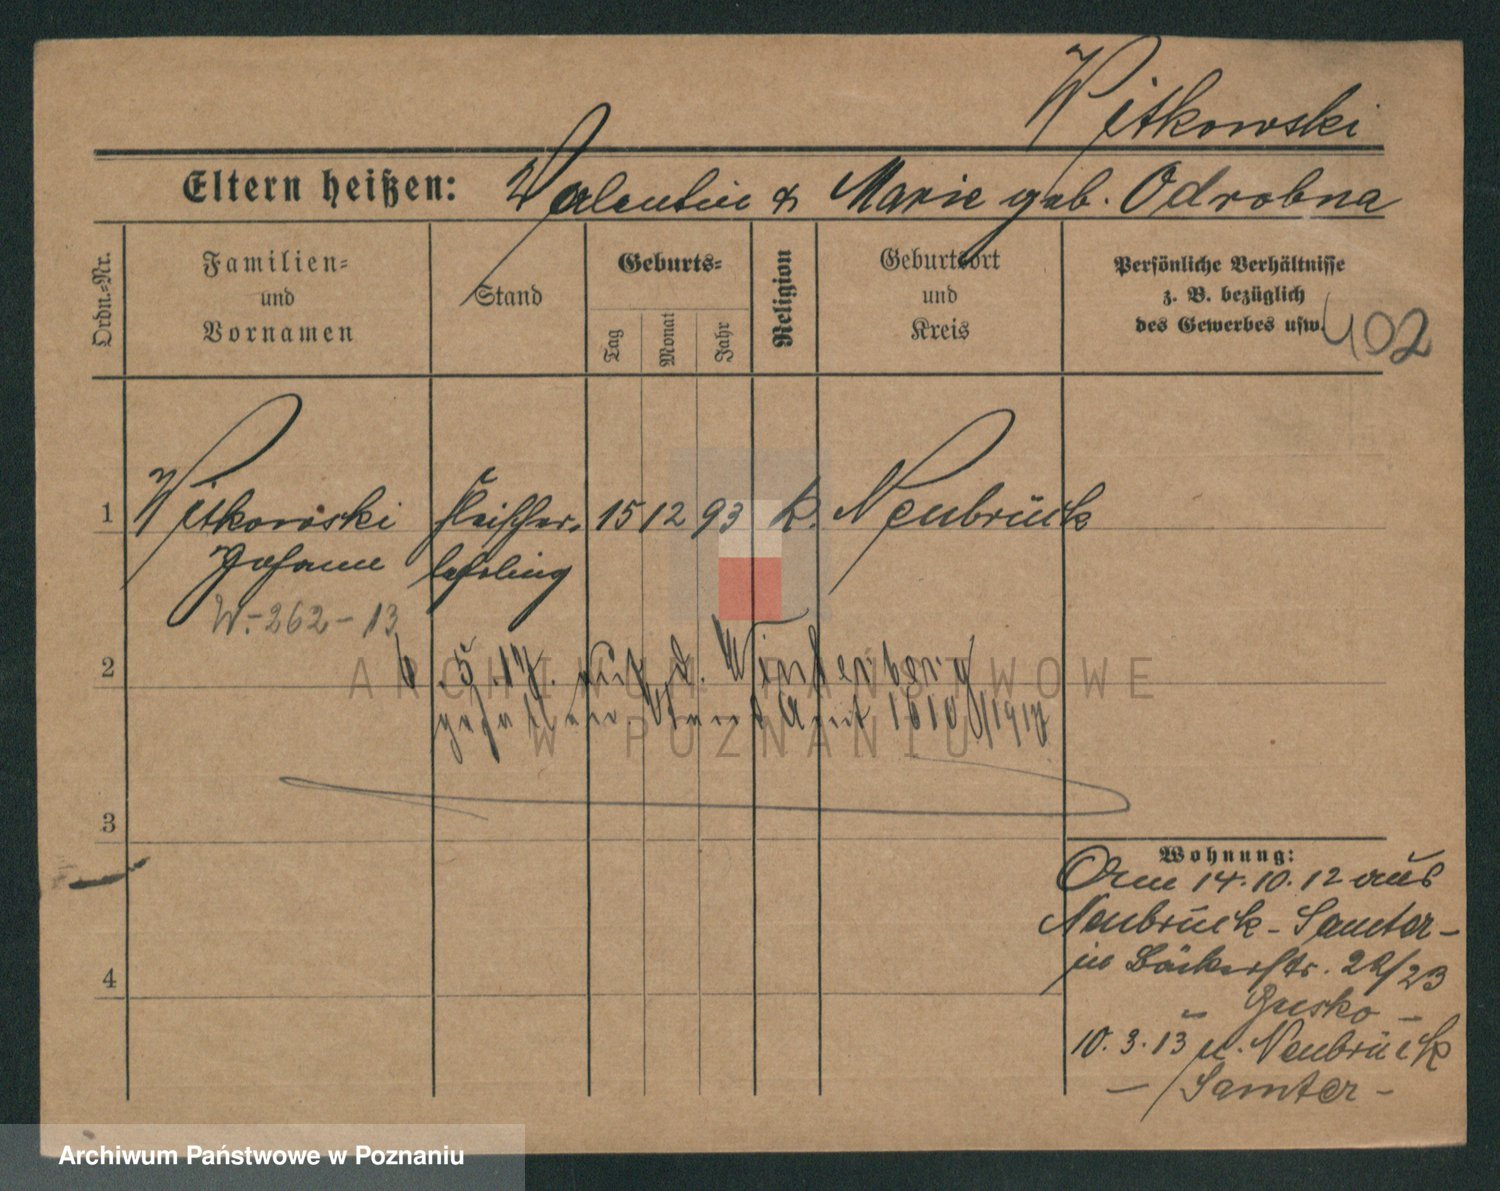 Witkowski
Eltern heißen: Valentin & Marie geb. Odrobna
Ordn.-Nr.
Familien-
und
Vornamen
Stand
Geburts-
Tag
Monat
Jahr
Religion
Geburtsort
und
Kreis
Persönliche Verhältnisse
z. B. bezüglich
des Gewerbes usw.
402
1 Witkowski Fleischer- 15 12 93 k. Neubrück
Johann lehrling
W.-262-13
2 6.5.17. Winterberg
gefallen
ARCHIWUM PAŃSTWOWE
W POZNANIU
3
Wohnung:
14.10.12 aus
Neubrück - Samter -
in Bäckerstr. 22/23
- Gusko -
10.3.13 n. Neubrück
- Samter -
4
Archiwum Państwowe w Poznaniu